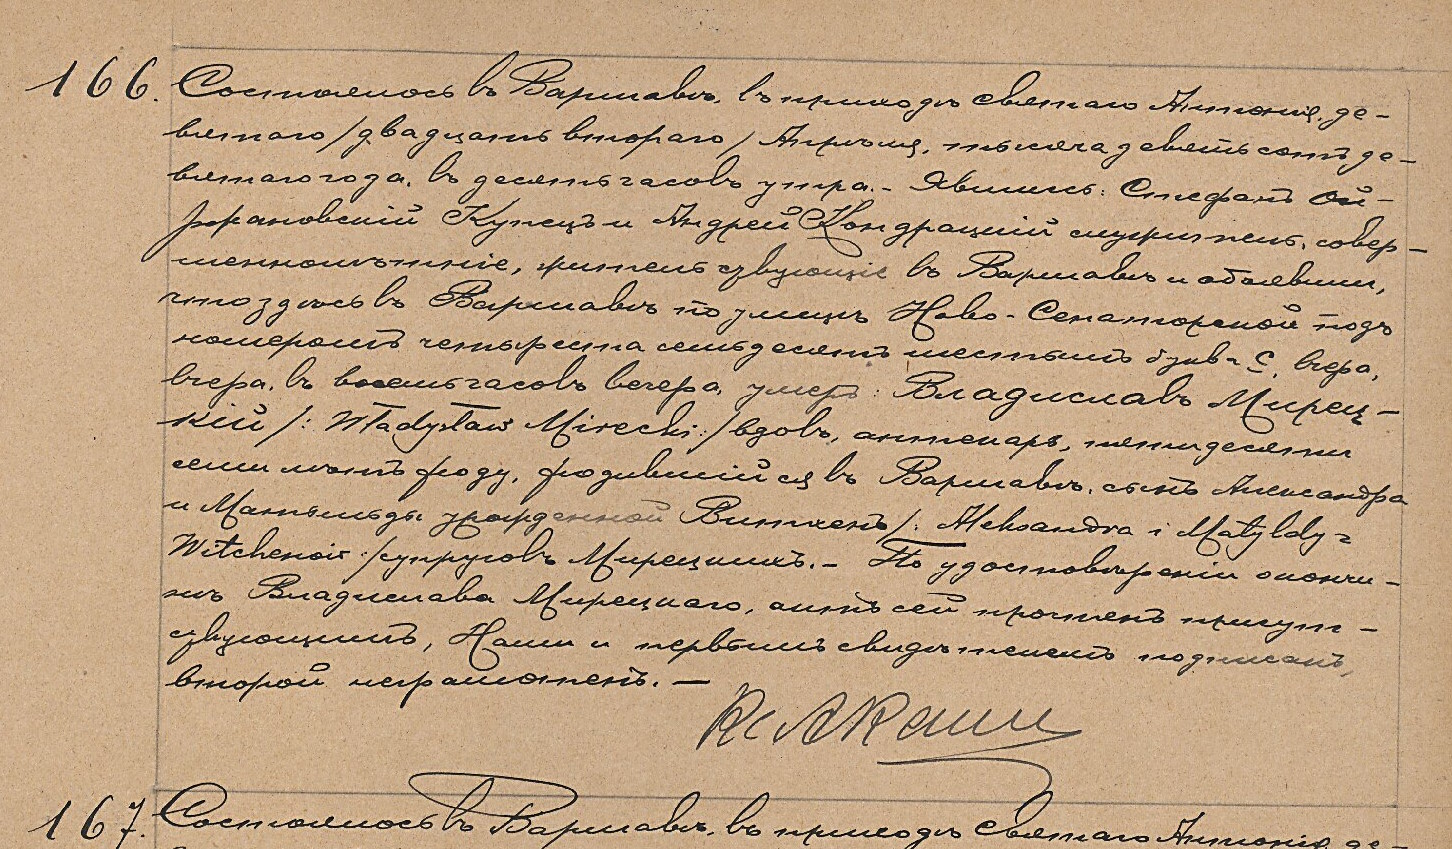 166. Состоялось въ Варшавѣ, въ приходѣ святаго Антонія, де-
вятаго /двадцать втораго/ Апрѣля, тысяча девятьсотъ де-
вятаго года, въ десять часовъ утра. - Явились: Стефанъ
Купецъ и Андрей Кондрацкій служитель, совер-
шеннолѣтніе, жительствующіе въ Варшавѣ и объявили,
что здѣсь въ Варшавѣ по улицѣ Ново-Сенаторской подъ
номеромъ четыреста семьдесятъ шестымъ букв. С, вчера,
вчера, въ восемь часовъ вечера, умеръ: Владиславъ Мирец-
кій /: Władysław Mirecki :/ вдовъ, аптекарь, пятидесяти
семи лѣтъ роду, родившійся въ Варшавѣ, сынъ Александра
и Матильды урожденной Витхенъ /: Aleksandra i Matyldy z
Witchenów :/ супруговъ Мирецкихъ. - По удостовѣреніи о кончи-
нѣ Владислава Мирецкаго, актъ сей прочтенъ присут-
ствующимъ, Нами и первымъ свидѣтелемъ подписанъ,
второй неграмотенъ. —
167. Состоялось въ Варшавѣ, въ приходѣ святаго Антонія, де-